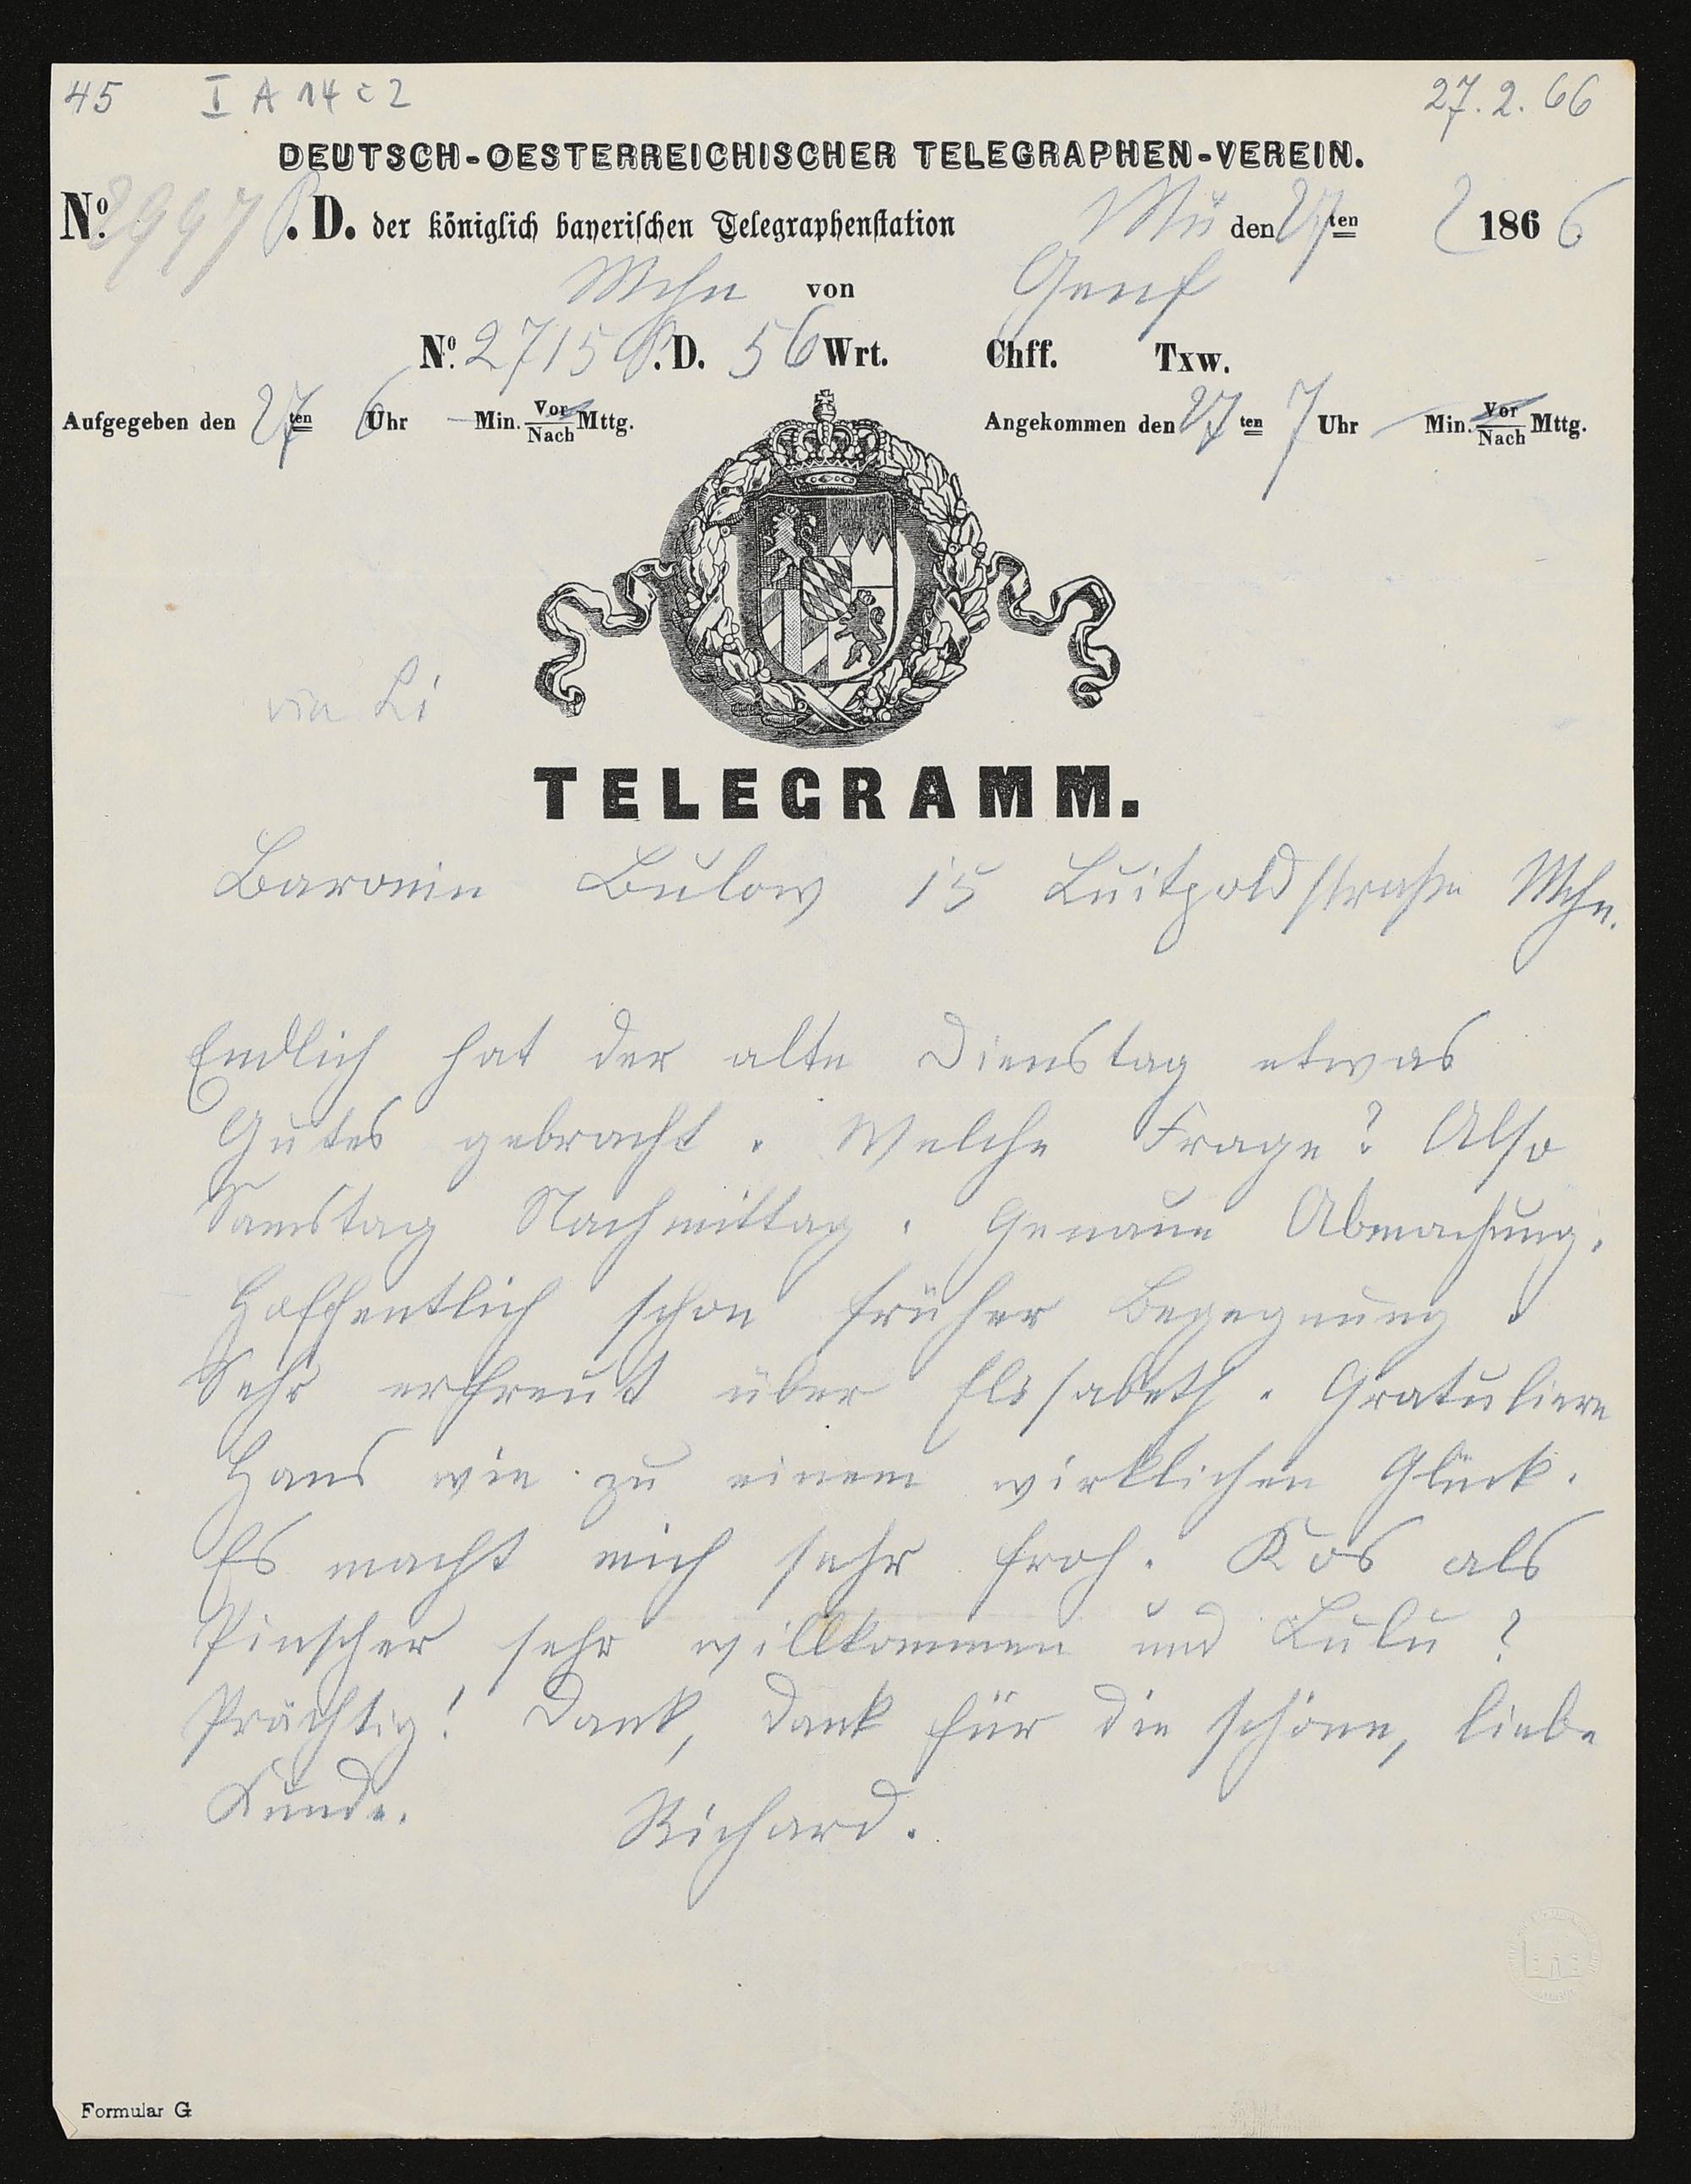 45 I A 14 c 2 27.2.66
DEUTSCH-OESTERREICHISCHER TELEGRAPHEN-VEREIN.
No. 2997 P.D. der königlich bayerischen Telegraphenstation Mü den 27ten 2 1866
Mchn von Genf
No. 2715 P.D. 56 Wrt. Chff. Txw.
Aufgegeben den 27ten 6 Uhr — Min. Vor/Nach Mttg. Angekommen den 27ten 7 Uhr — Min. Vor/Nach Mttg.
via Li
TELEGRAMM.
Baronin Bülow 15 Luitpoldstraße Mchn.
Endlich hat der alte Dienstag etwas
Gutes gebracht. Welche Frage? Also
Samstag Nachmittag. Genaue Abmachung.
Hoffentlich schon früher Begegnung.
Sehr erfreut über Elisabeth. Gratuliere
Hans wie zu einem wirklichen Glück.
Es macht mich sehr froh. Kos als
Pinscher sehr willkommen und Lulu?
Prächtig! Dank, Dank für die schöne, liebe
Kunde. Richard.
Formular G